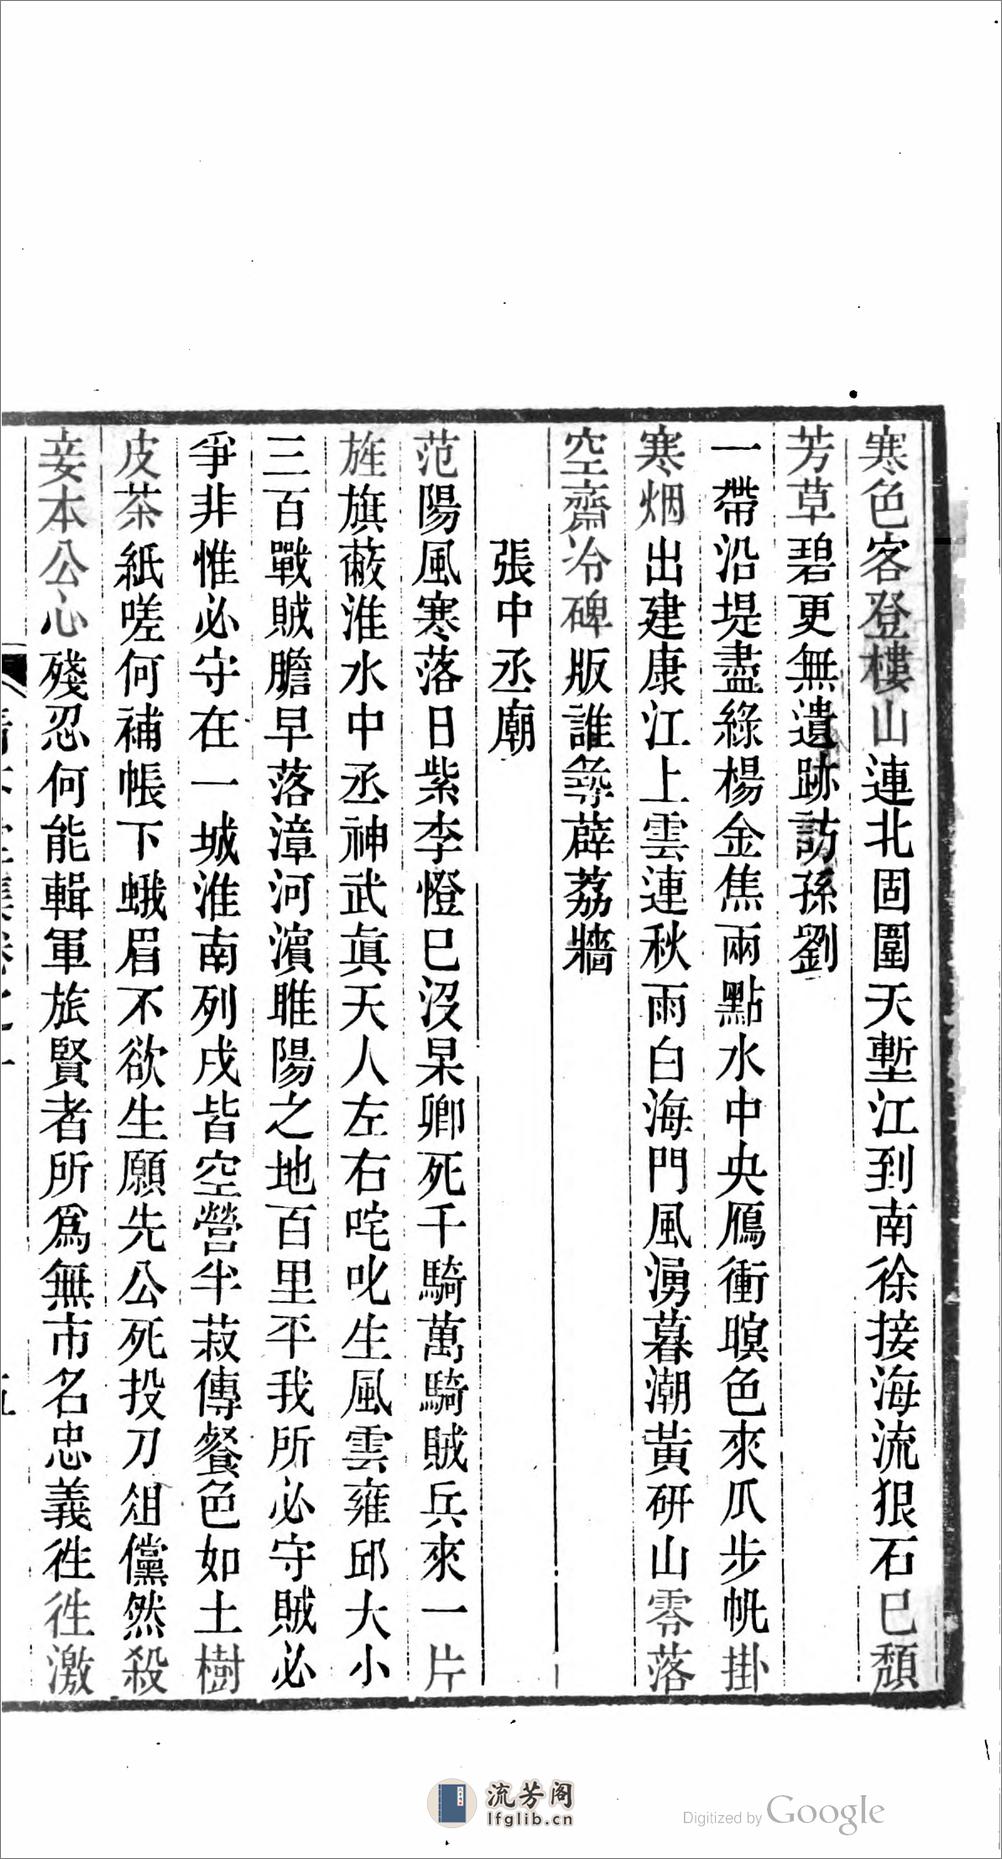 寒色客登樓山連北固圍天塹江到南徐接海流狠石已頹
芳草碧更無遺跡訪孫劉
一帶沿堤盡綠楊金焦兩點水中央鴈衝暝色來瓜步帆掛
寒烟出建康江上雲連秋雨白海門風湧暮潮黃硏山零落
空齋冷碑版誰尋薜荔牆
張中丞廟
范陽風寒落日紫李憕已沒杲卿死千騎萬騎賊兵來一片
旌旗蔽淮水中丞神武眞天人左右咤叱生風雲雍邱大小
三百戰賊膽早落漳河濵睢陽之地百里平我所必守賊必
爭非惟必守在一城淮南列戍皆空營半菽傳餐色如土樹
皮茶紙嗟何補帳下蛾眉不欲生願先公死投刀俎儻然殺
妾本公心殘忍何能輯軍旅賢者所爲無市名忠義徃徃激
五
流芳阁
lfglib.cn
Digitized by Google